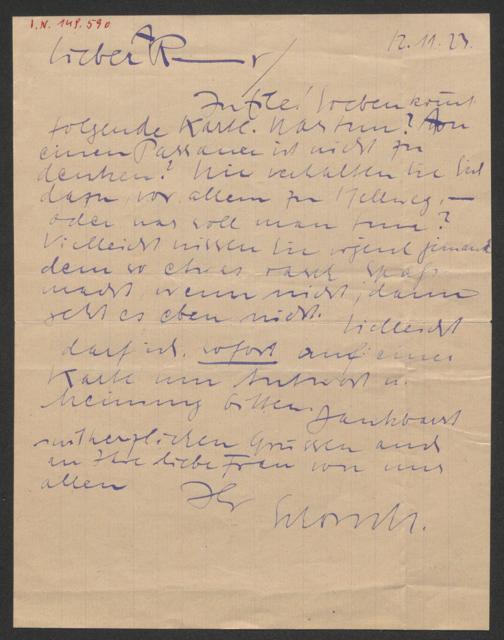 I.N. 149.590
12.11.23.
Lieber R
soeben kommt
folgende Karte. Was tun? An
einen Passauer ist nicht zu
denken? Wie verhalten Sie sich
dazu, vor allem zu Hellweg, —
oder was soll man tun?
Vielleicht wissen Sie irgend jemand
dem so etwas rasch Spaß
macht, wenn nicht, dann
geht es eben nicht. Vielleicht
darf ich sofort auf einer
Karte um Antwort u.
Meinung bitten. Dankbarst
mit herzlichen Grüssen auch
an Ihre liebe Frau von uns
allen Ihr